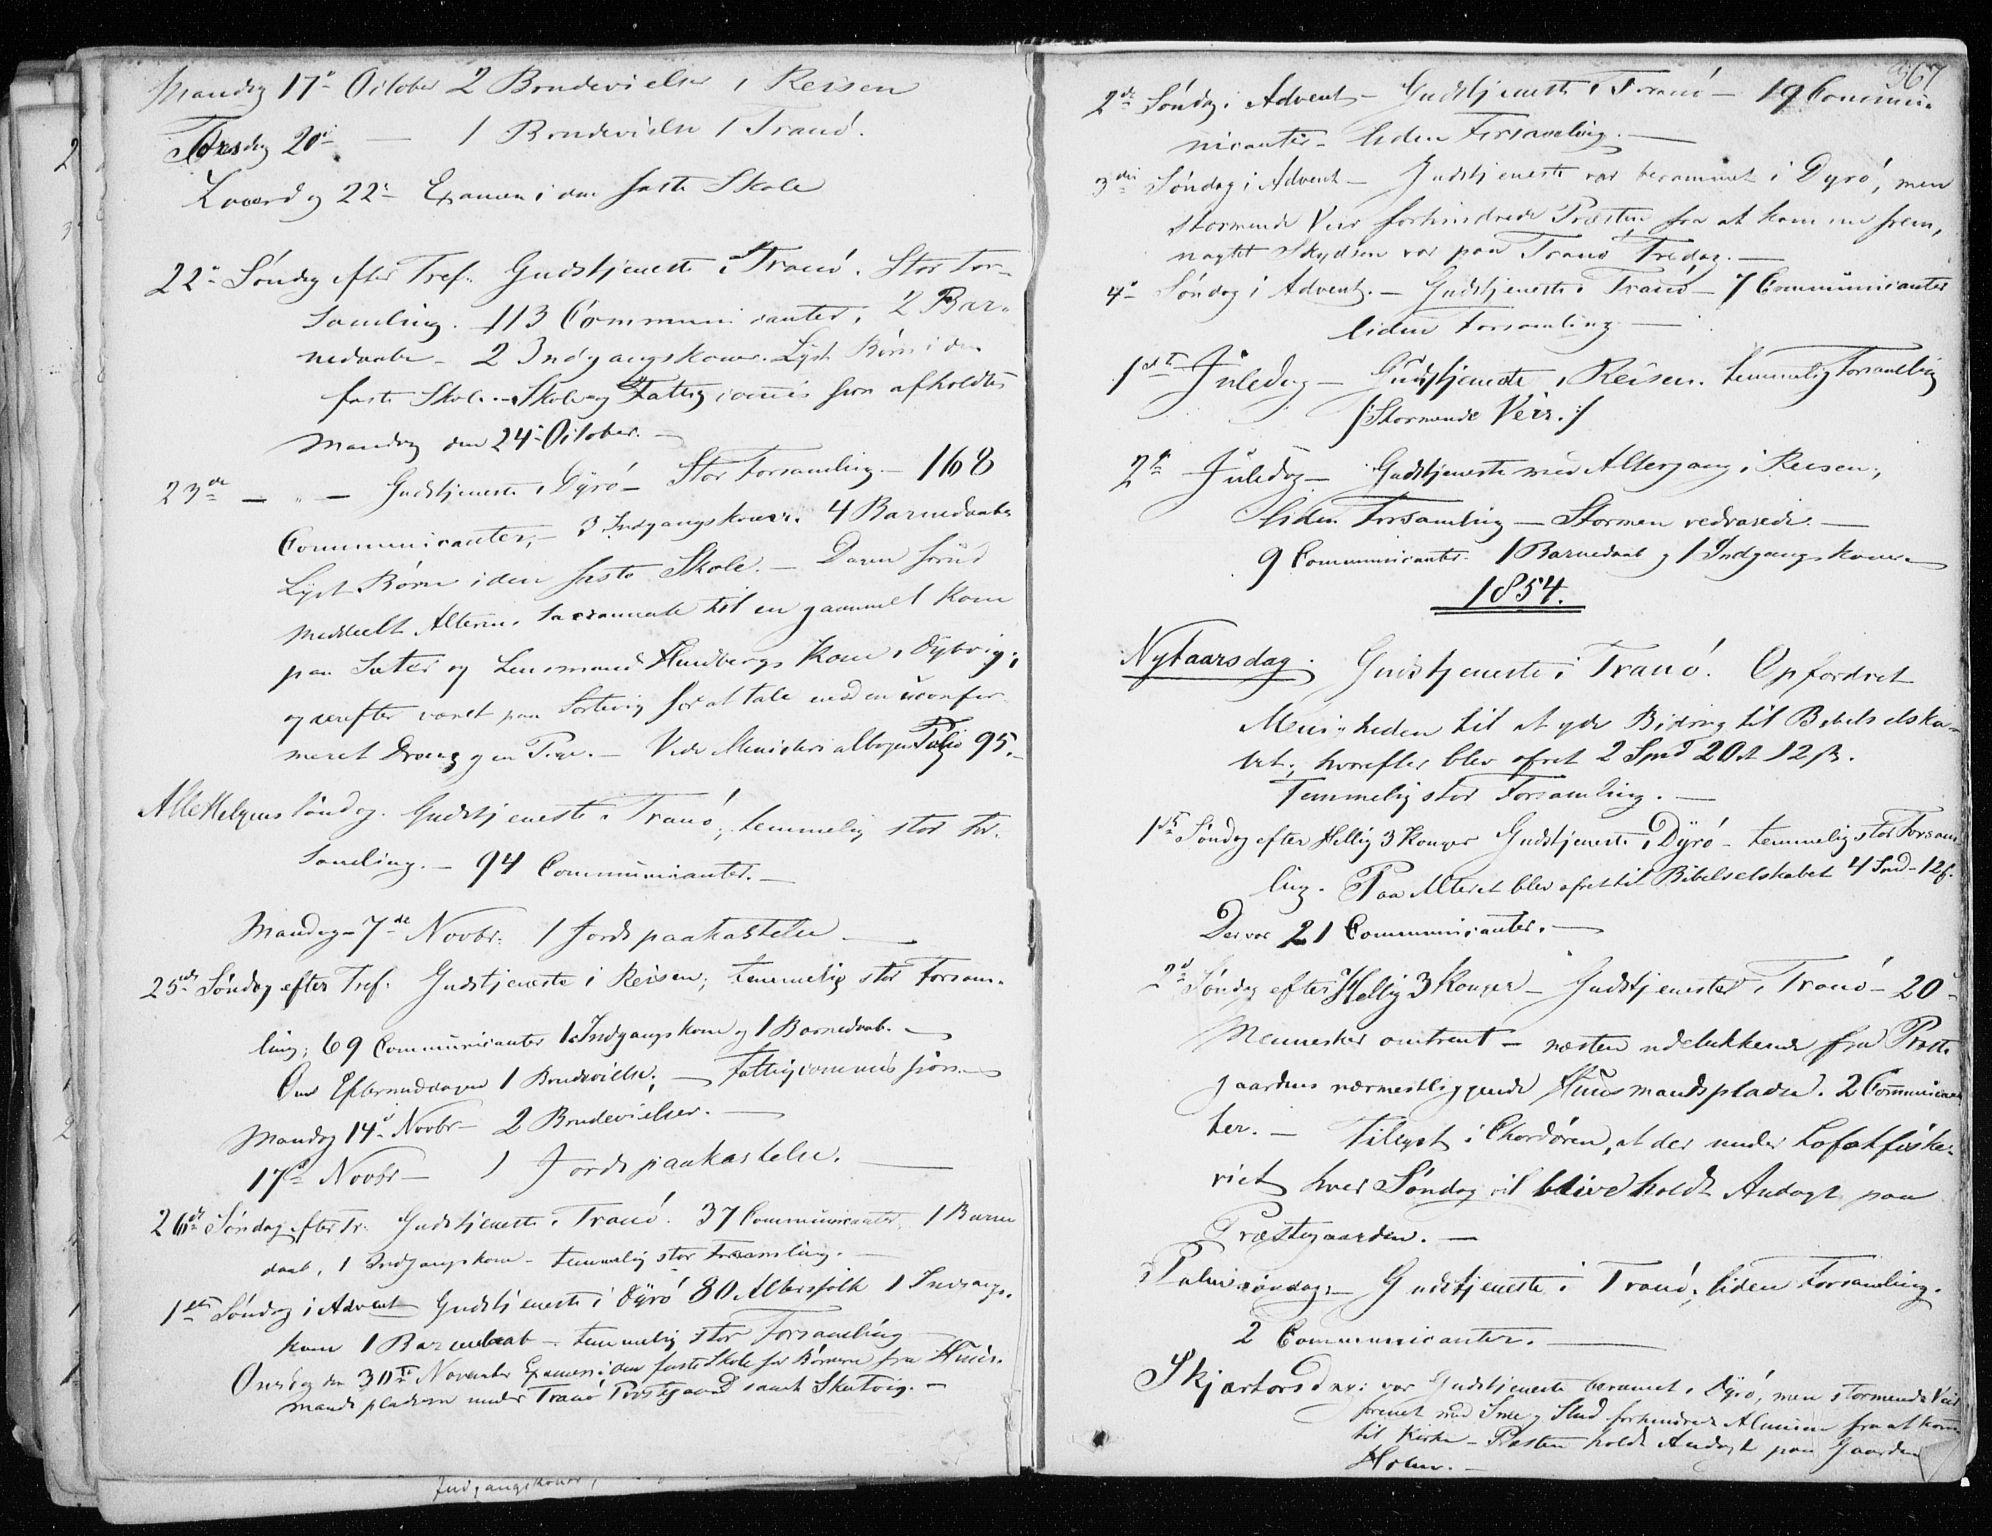 Mandag 17de October 2 Brudevielser i Reisen
Torsdag 20de — 1 Brudevielse i Tranö.
Løverdag 22de Examen i den faste Skole
22de Søndag efter Tref. Gudstjeneste i Tranö. Stor For-
samling. 113 Communicanter, 2 Bar-
nedaabe – 2 Indgangskoner. Lyst Børn i den
faste Skole. – Skole og Fattigcommission afholdtes
Mandag den 24de October. –
23de — " — Gudstjeneste i Dyrö – Stor Forsamling – 168
Communicanter, – 3 Indgangskoner. 4 Barnedaabe
Lyst Børn i den faste Skole. – Dagen forud
meddeelt Alterens Sacramente til en gammel Kone
paa Sæter og Lensmand Hundbergs Kone i Dybvig;
og derefter været paa Sortevig for at tale med en uconfir-
meret Dreng og en Pige. – Vide Ministerialbogen Folio 95. –
Alle Helgens Søndag. Gudstjeneste i Tranö; temmelig stor For-
samling. – 94 Communicanter. –
Mandag – 7de Novbr. 1 Jordspaakastelse —
25de Søndag efter Tref. Gudstjeneste i Reisen; temmelig stor Forsam-
ling; 69 Communicanter 1 Indgangskone og 1 Barnedaab. —
Om Eftermiddagen 1 Brudevielse; — Fattigcommission —
Mandag 14de Novbr – 2 Brudevielser. —
17de Novbr – 1 Jordspaakastelse. —
26de Søndag efter Tr. Gudstjeneste i Tranö. 37 Communicanter, 1 Barne
daab, 1 Indgangskone – temmelig stor Forsamling. —
1ste Søndag i Advent Gudstjeneste i Dyrö 80 Altersfolk 1 Indgangs-
kone 1 Barnedaab – temmelig stor Forsamling
Onsdag den 30te November Examen i den faste Skole for Børnene fra Huus-
mandspladsene under Tranö Præstegaard samt Skatvig. –
Indgangskoner,
367
2de Søndag i Advent – Gudstjeneste i Tranö – 19 Commu-
nicanter – liden Forsamling. —
3die Søndag i Advent – Gudstjeneste var berammet i Dyrö, men
stormende Veir forhindrede Præsten fra at komme frem,
nagtet Skydsen var paa Tranö Fredag. —
4de Søndag i Advent. – Gudstjeneste i Tranö – 7 Communicanter
liden Forsamling —
1ste Juledag – Gudstjeneste i Reisen. temmelig Forsamling
/: Stormende Veir. :/
2de Juledag – Gudstjeneste med Altergang i Reisen;
liden Forsamling – Stormen vedvarede. —
9 Communicanter. 1 Barnedaab og 1 Indgangskone. –
1854.
Nytaarsdag. Gudstjeneste i Tranö. Opfordret
Menigheden til at yde Bidrag til Bibelselska-
bet; hvorefter blev ofret 2 Spd 20 12 ß.
Temmelig stor Forsamling. —
1ste Søndag efter Hellig 3 Konger Gudstjeneste i Dyrö – temmelig stor Forsam-
ling. Paa Alteret blev ofret til Bibelselskabet 4 Spd – 12 ß.
Der var 21 Communicanter. —
2den Søndag efter Hellig 3 Konger – Gudstjeneste i Tranö – 20
Mennesker omtrent – næsten udelukkende fra Præste
gaardens nærmestliggende Huusmandspladse. 2 Communican-
ter. – Tillyst i Chordören, at der under Lofotfiske-
riet hver Søndag vil blive holdt Andagt paa
Præstegaarden. —
Palmesøndag; – Gudstjeneste i Tranö; liden Forsamling.
2 Communicanter. —
Skjærtorsdag: var Gudstjeneste berammet i Dyrö, men stormende Veir
forenet med Snee og Slud forhindrede Almuen fra at komme
til Kirke – Præsten holdt Andagt paa Gaarden
Holm. –